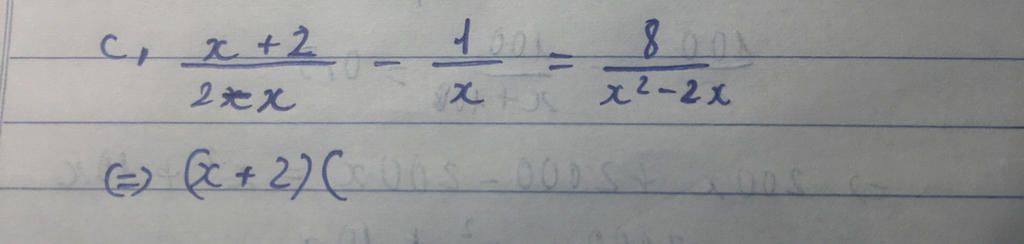 c, \frac{x+2}{2-x} - \frac{1}{x} = \frac{8}{x^2-2x}
(=) (x+2)(